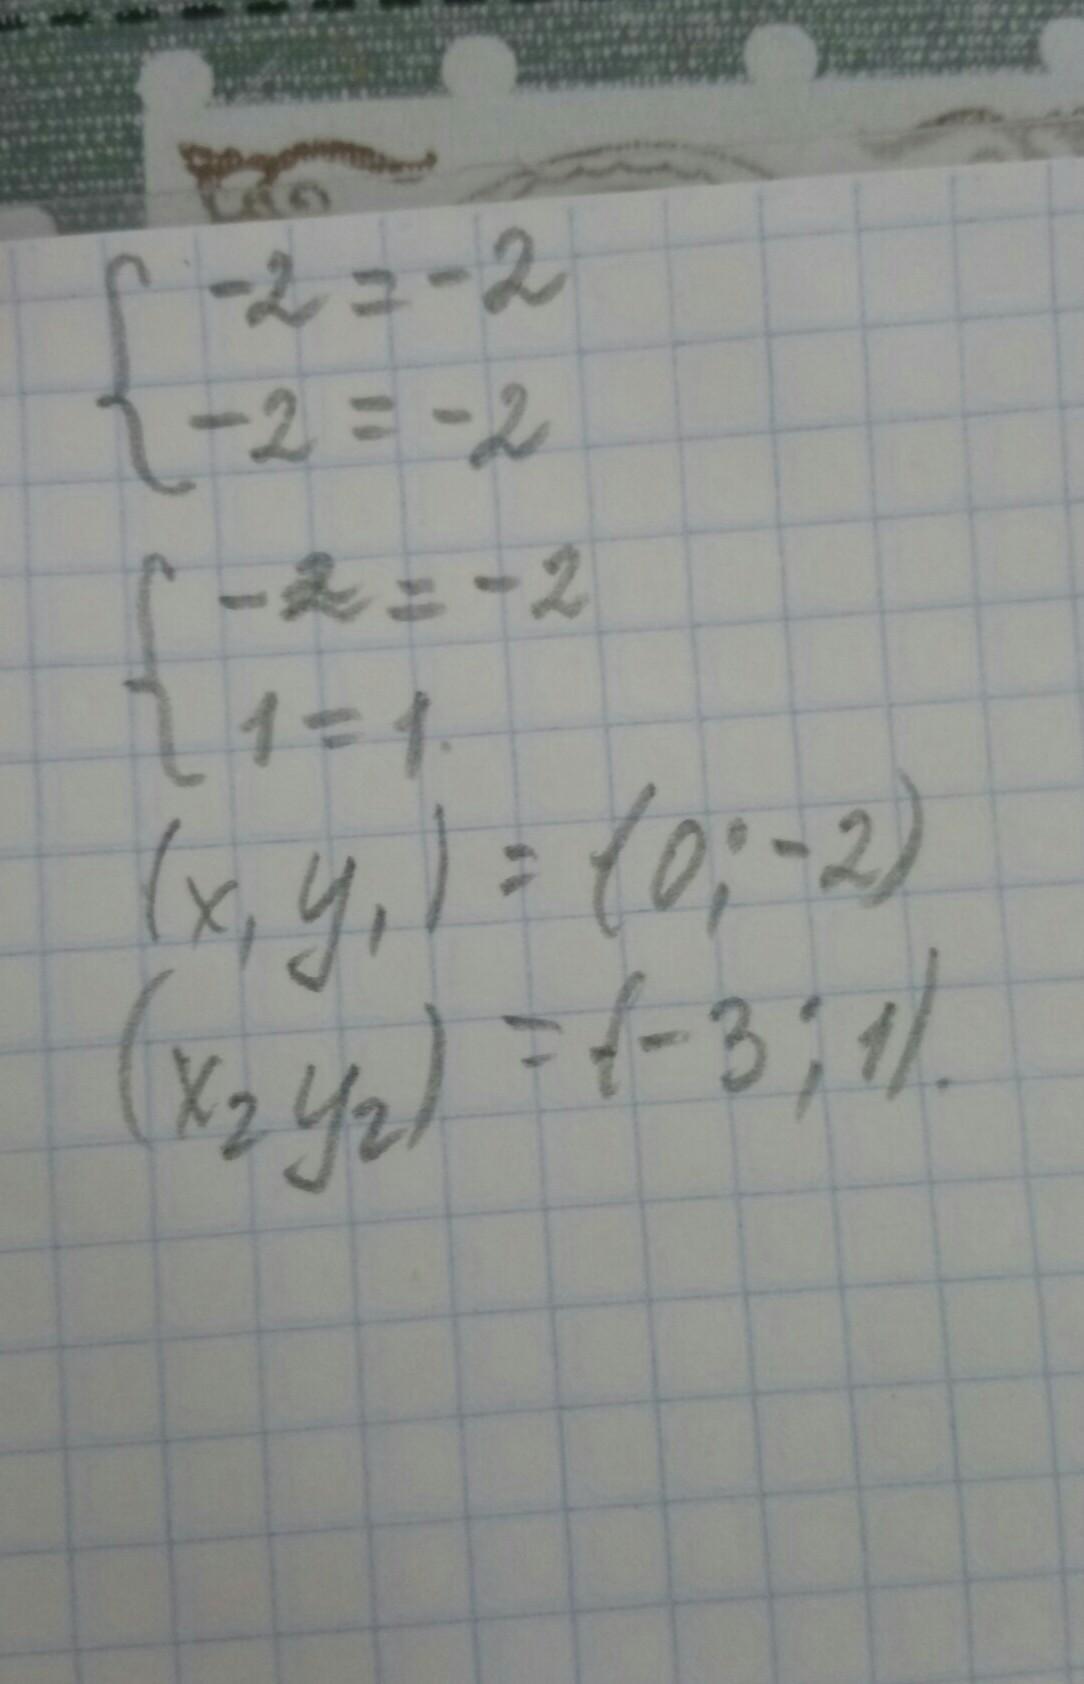 { -2 = -2
-2 = -2
{ -2 = -2
1 = 1.
(x₁ y₁) = (0; -2)
(x₂ y₂) = (-3; 1).